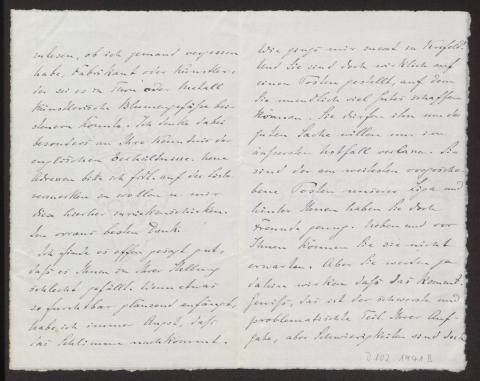 wissen, ob ich jemand vergessen
habe, Fabrikant oder Künstler,
der sei es in Thon oder Metall
künstlerische Blumengefässe bei-
steuern könnte. Ich denke dabei
besonders an Ihre Kenntnis der
englischen Verhältnisse. Neue
Adressen bitte ich frdl. auf der Liste
vermerken zu wollen u. mir
diese hierher zurückzuschicken.
Im voraus besten Dank.
Ich finde es offen gesagt gut,
dass es Ihnen in Ihrer Stellung
schlecht gefällt. Wenn etwas
so furchtbar glänzend anfängt,
habe ich immer Angst, dass
das Schlimme nachkommt.
Wie gings mir zuerst in Krefeld!
Und Sie sind doch wirklich auf
einen Posten gestellt, auf dem
Sie unendlich viel Gutes schaffen
können. Sie dürfen ihn um der
guten Sache willen nur im
äussersten Notfall verlassen. Sie
sind der am weitesten vorgescho-
bene Posten unserer Liga und
hinter Ihnen haben Sie doch
Freunde genug. Neben und vor
Ihnen können Sie sie nicht
erwarten. Aber Sie werden ja
dahin wirken dass das kommt.
Gewiss, das ist der schwerste und
problematischste Teil Ihrer Auf-
gabe, aber Schwierigkeiten sind doch
D 102 1441 B